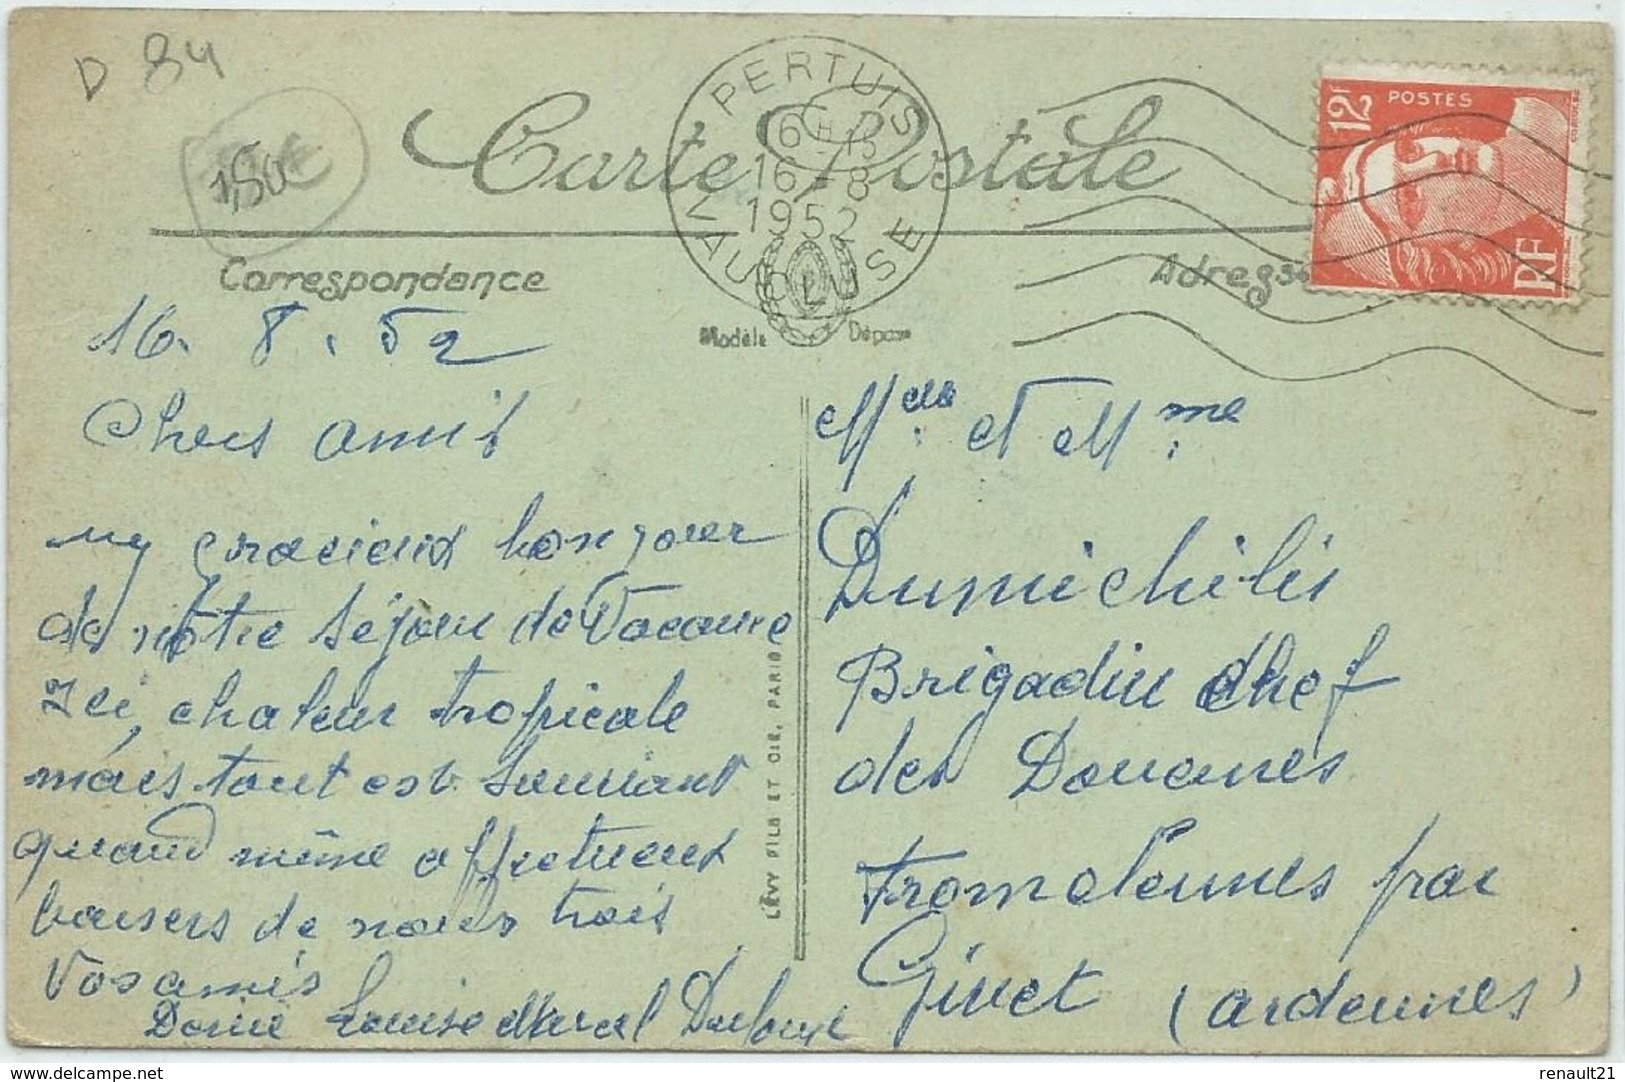 D 84
1,50€
Carte Postale
PERTUIS
16 H 15
16 - 8
1952
VAUCLUSE
12F
POSTES
RF
Correspondance
Adresse
Modèle Déposé
16. 8. 52
Chers amis
un gracieux bonjour
de notre séjour de Vacance
Ici, chaleur tropicale
mais tout est souriant
quand même affectueux
baisers de nous trois
Vos amis
Louise Marcel
LÉVY FILS ET CIE, PARIS
et Mme
Dumichilis
Brigadier chef
des Douanes
Fromelennes par
Givet (Ardennes)
delcampe.net
renault21